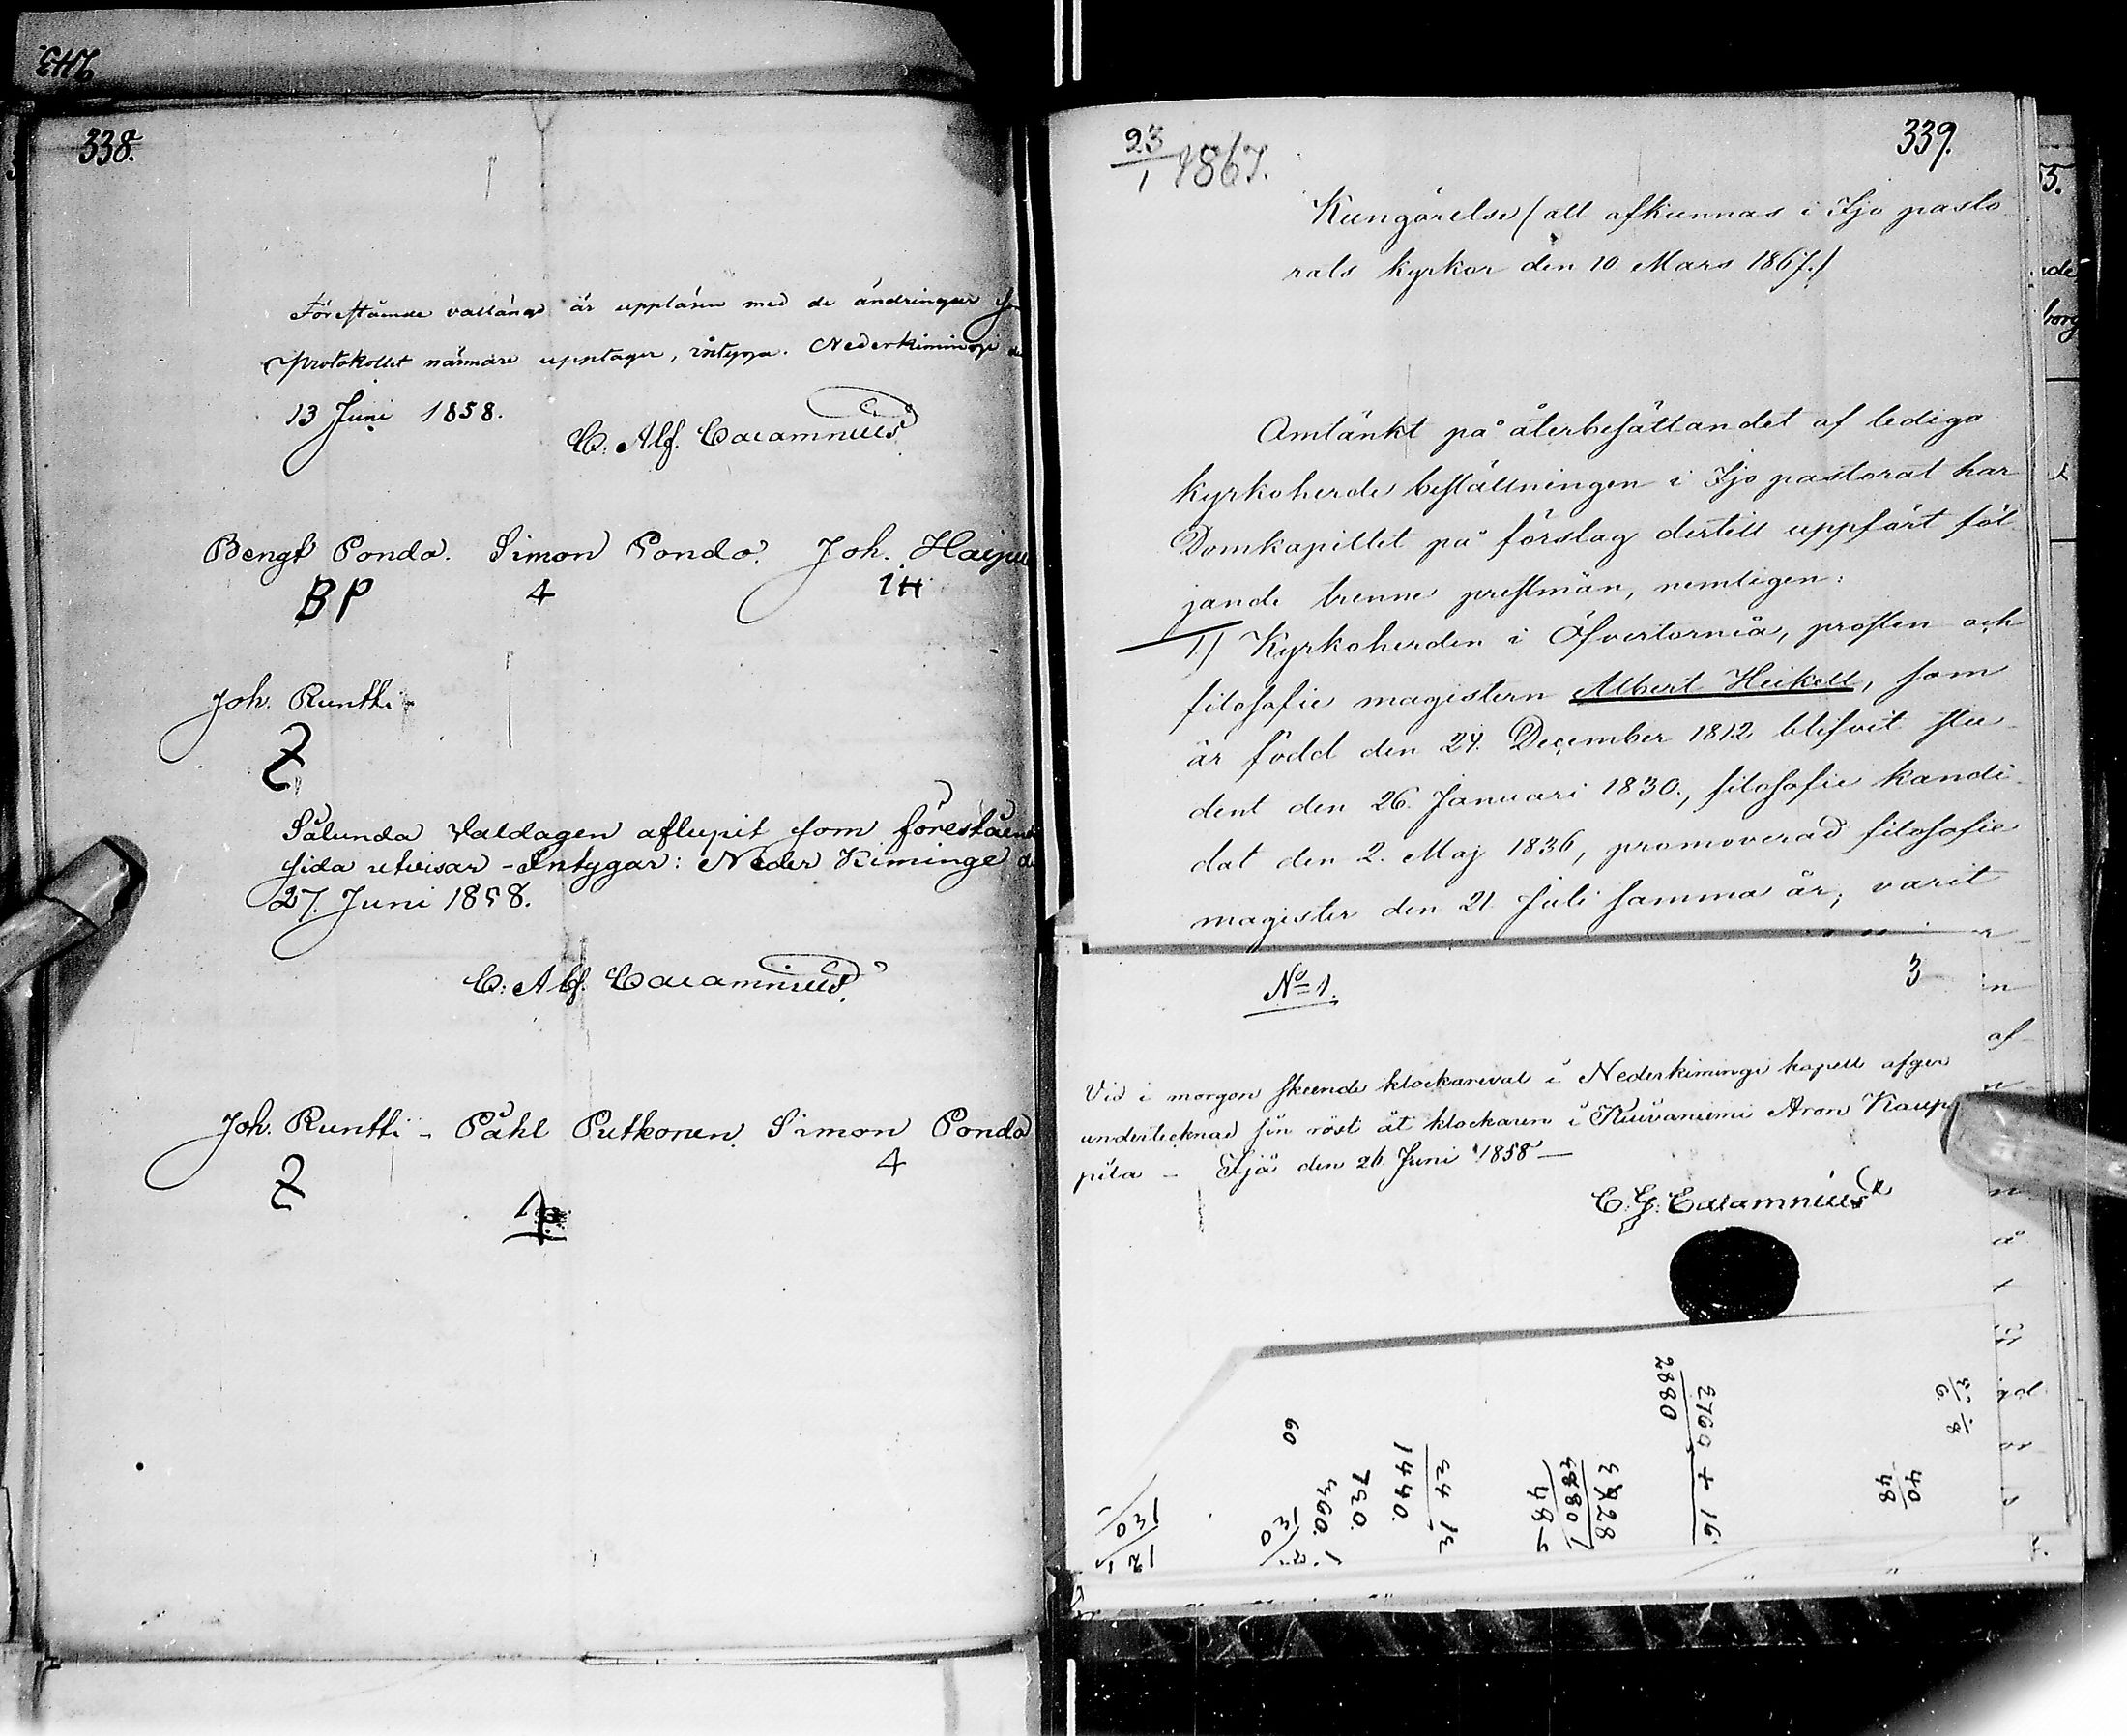 338.
Förestående vallängd är uppläsen med de ändringar som
Protokollet närmare upptager, intyga. Nederkiminge de
13 Juni 1858.
C. Alf. Calamnius
Bengt Pondo. Simon Pondo. Joh. Haipu
BP 4 IH
Joh. Runtti
Sålunda Valdagen aflupit som föreståend
sida utvisar - Intygar: Neder Kiminge d
27. Juni 1858.
C. Alf. Calamnius
Joh. Runtti - Påhl Putkonen Simon Pondo
4
339.
23/1 1867.
Kungörelse (att afkunnas i Ijo pasto
rats kyrkor den 10 Mars 1867.)
Omtänkt på återbesättandet af lediga
kyrkoherde beställningen i Ijo pastorat har
Domkapitlet på förslag dertill uppfört föl
jande trenne prestmän, nemligen:
1) Kyrkoherden i Öfvertorneå, prosten och
filosofie magistern Albert Heikell, som
är född den 24. December 1812 blifvit stu-
dent den 26. Januari 1830., filosofie kandi-
dat den 2. Maj 1836, promoverad filosofie
magister den 21. Juli samma år; varit
No 1. 3
Vid i morgon skeende klockareval i Nederkiminge kapell afger
undertecknad sin röst åt klockaren i Kuivaniemi Aron Kaup
pila - Ijå den 26. Juni 1858 -
C. G. Calamnius
2760 + 16
2880
2928
2880
48
24 12
1440.
720.
360.
60
120
40
48